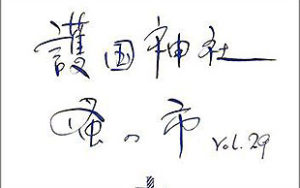 護国神社
蚤の市 Vol.29